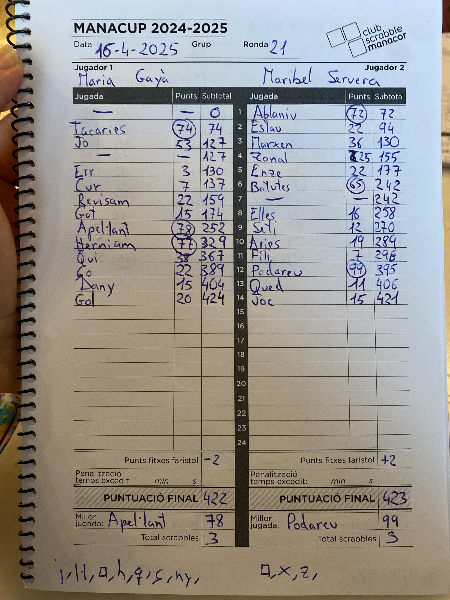 MANACUP 2024-2025
club scrabble manacor
Data 16-4-2025 Grup Ronda 21
Jugador 1 Jugador 2
Maria Gayà Maribel Servera
Jugada Punts Subtotal Jugada Punts Subtotal
— — 0 1 Ablaniu 72 72
Tacaries 74 74 2 Eslau 22 94
Jo 53 127 3 Marxen 36 130
— — 127 4 Zonal 25 155
Err 3 130 5 Enze 22 177
Cur 7 137 6 Batutes 65 242
Revisam 22 159 7 — — 242
Got 15 174 8 Elles 16 258
Apel·lant 78 252 9 Seti 12 270
Herniam 77 329 10 Aries 19 289
Qui 38 367 11 Fili 7 296
Co 22 389 12 Podareu 99 395
Dany 15 404 13 Qued 11 406
Gol 20 424 14 Joc 15 421
15
16
17
18
19
20
21
22
23
24
Punts fitxes faristol -2 Punts fitxes faristol +2
Penalització temps excedit: min s Penalització temps excedit: min s
PUNTUACIÓ FINAL 422 PUNTUACIÓ FINAL 423
Millor jugada: Apel·lant 78 Millor jugada: Podareu 99
Total scrabbles 3 Total scrabbles 3